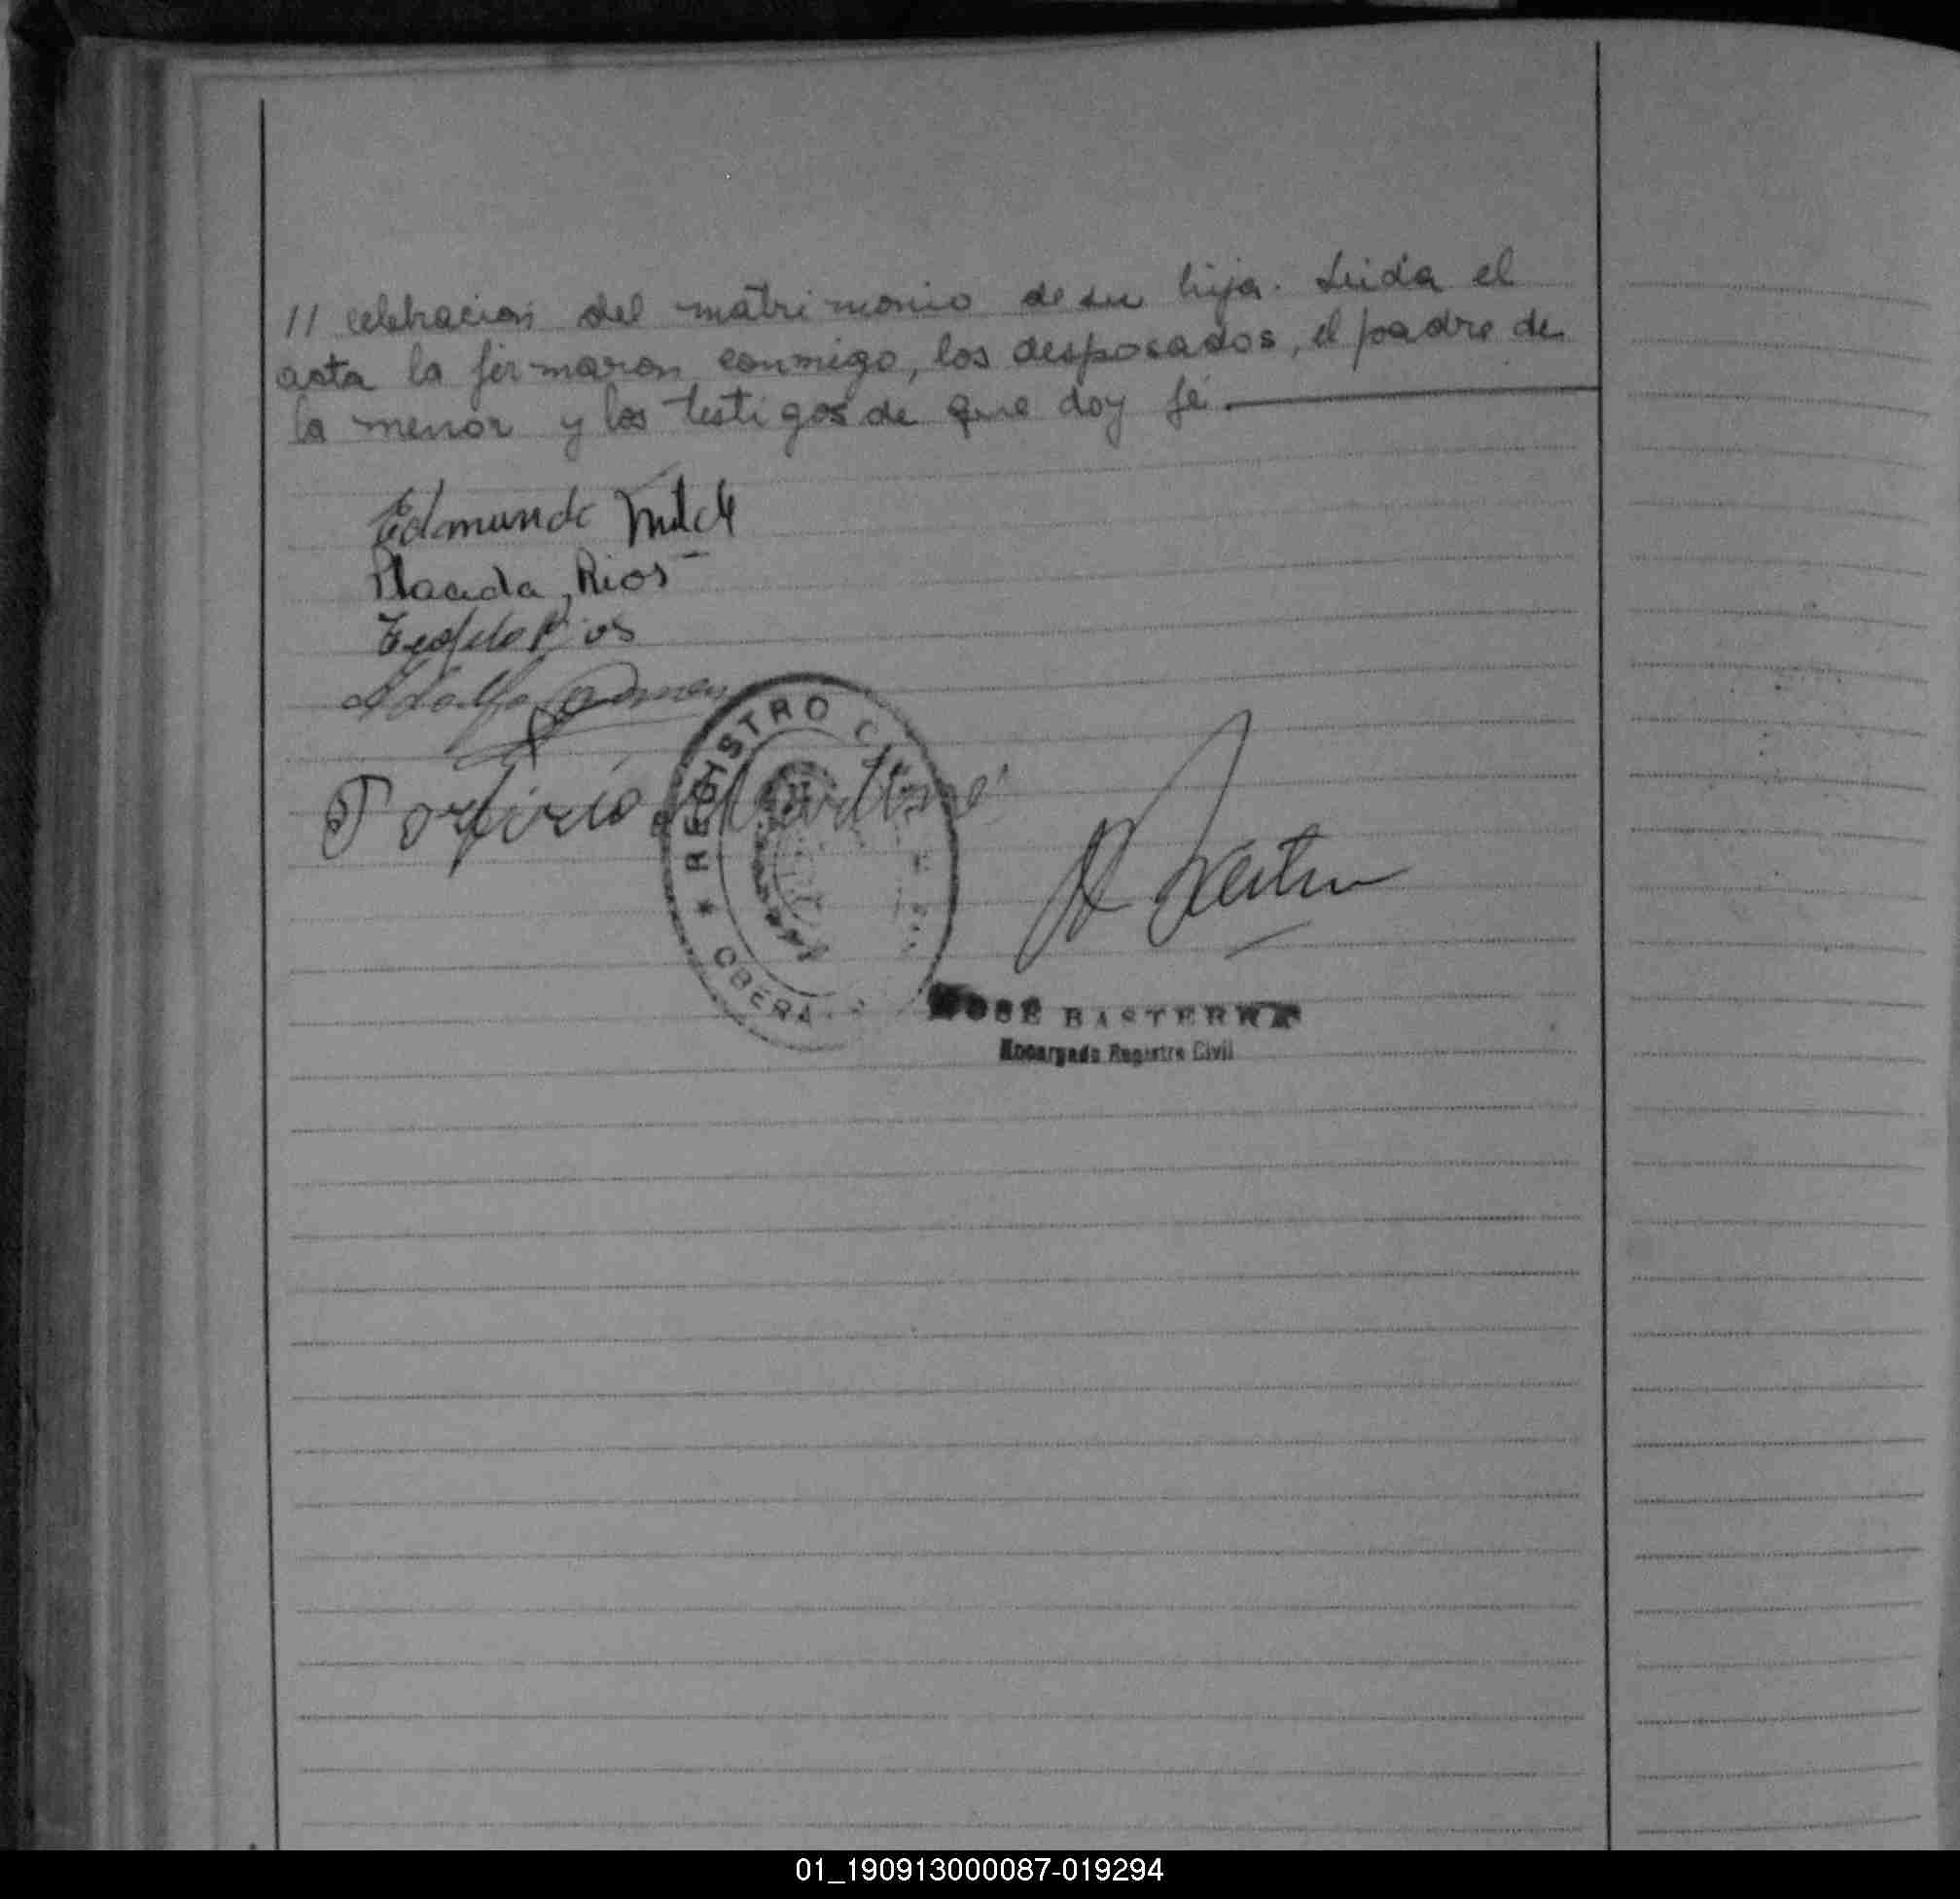 // celebracion del matrimonio de su hija. Leida el
acta la firmaron conmigo, los desposados, el padre de
la menor y los testigos de que doy fé.
Edmundo
Placida Rios
Teofilo Rios
Adolfo
Porfirio
REGISTRO
OBERA
JOSÉ BASTERRA
Encargado Registro Civil
01_190913000087-019294